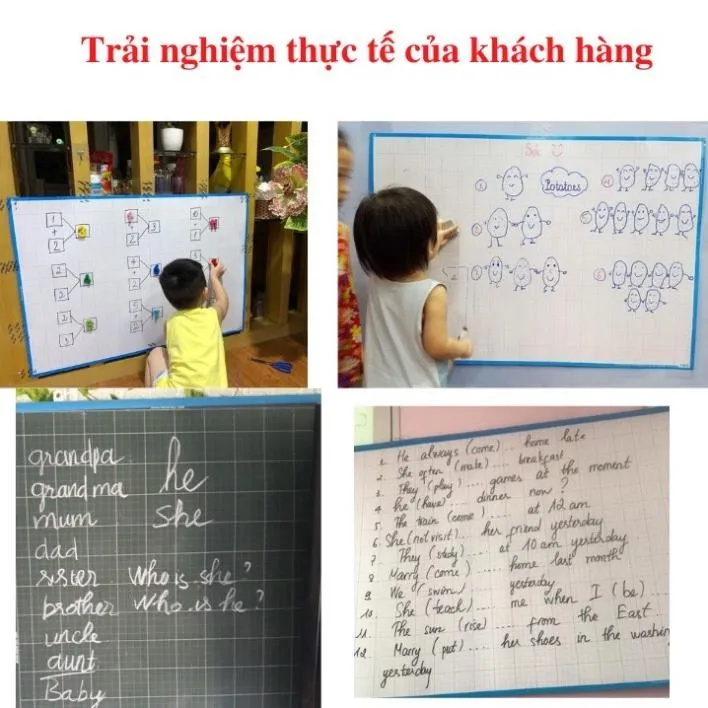 Trải nghiệm thực tế của khách hàng
1
+
2
3
2
2
3
2
Số
1
Potatoes
2
3
4
5
6
grandpa
grandma
mum
dad
sister
brother
uncle
aunt
Baby
he
she
Who is she?
Who is he?
1. He always (come).... home late
2. She often (make).... breakfast
3. They (play).... games at the moment
4. he (have).... dinner now?
5. The train (come).... at 12 am
6. She (not visit).... her friend yesterday
7. They (study).... at 10 am yesterday
8. Marry (come).... home last month
9. We (swim) yesterday
10. She (teach).... me when I (be)....
11. The sun (rise).... from the East...
12. Marry (put).... her shoes in the washin
yesterday